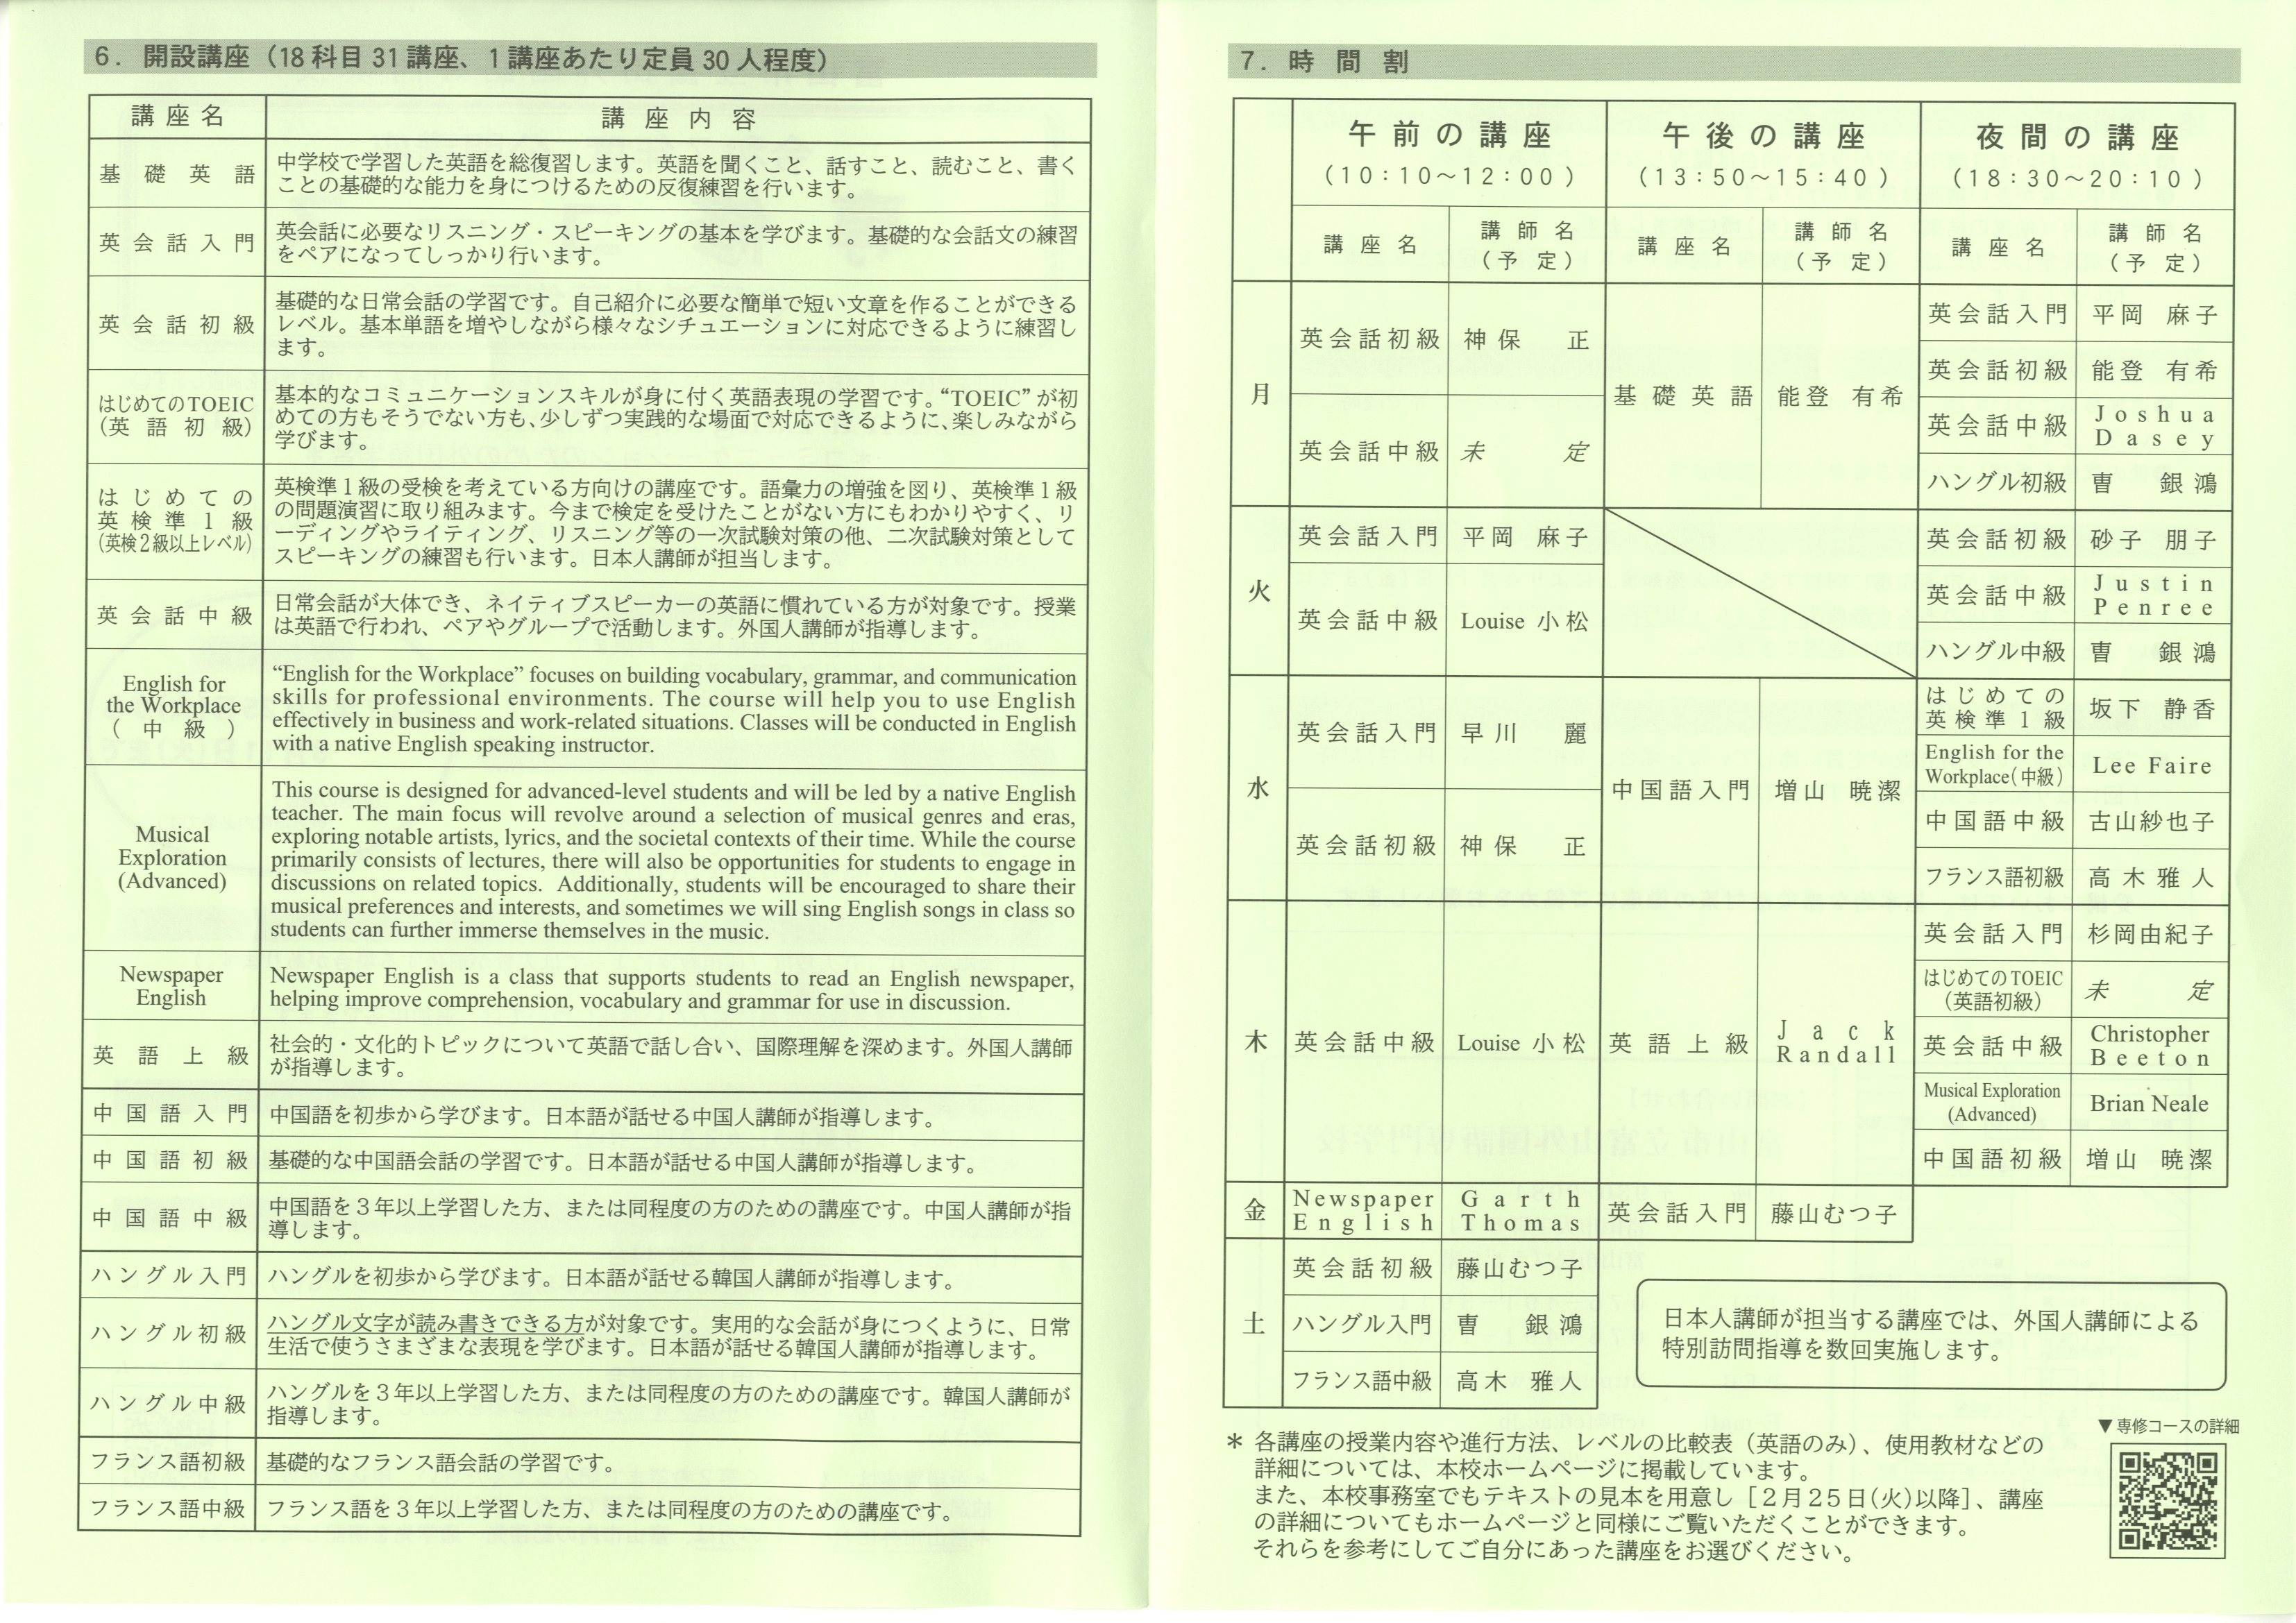 6. 開設講座（18科目31講座、1講座あたり定員30人程度）
講座名
講座内容
基礎英語
中学校で学習した英語を総復習します。英語を聞くこと、話すこと、読むこと、書く
ことの基礎的な能力を身につけるための反復練習を行います。
英会話入門
英会話に必要なリスニング・スピーキングの基本を学びます。基礎的な会話文の練習
をペアになってしっかり行います。
英会話初級
基礎的な日常会話の学習です。自己紹介に必要な簡単で短い文章を作ることができる
レベル。基本単語を増やしながら様々なシチュエーションに対応できるように練習し
ます。
はじめてのTOEIC
（英語初級）
基本的なコミュニケーションスキルが身に付く英語表現の学習です。“TOEIC”が初
めての方もそうでない方も、少しずつ実践的な場面で対応できるように、楽しみながら
学びます。
はじめての
英検準１級
（英検２級以上レベル）
英検準１級の受検を考えている方向けの講座です。語彙力の増強を図り、英検準１級
の問題演習に取り組みます。今まで検定を受けたことがない方にもわかりやすく、リ
ーディングやライティング、リスニング等の一次試験対策の他、二次試験対策として
スピーキングの練習も行います。日本人講師が担当します。
英会話中級
日常会話が大体でき、ネイティブスピーカーの英語に慣れている方が対象です。授業
は英語で行われ、ペアやグループで活動します。外国人講師が指導します。
English for
the Workplace
（中級）
“English for the Workplace” focuses on building vocabulary, grammar, and communication
skills for professional environments. The course will help you to use English
effectively in business and work-related situations. Classes will be conducted in English
with a native English speaking instructor.
Musical
Exploration
(Advanced)
This course is designed for advanced-level students and will be led by a native English
teacher. The main focus will revolve around a selection of musical genres and eras,
exploring notable artists, lyrics, and the societal contexts of their time. While the course
primarily consists of lectures, there will also be opportunities for students to engage in
discussions on related topics. Additionally, students will be encouraged to share their
musical preferences and interests, and sometimes we will sing English songs in class so
students can further immerse themselves in the music.
Newspaper
English
Newspaper English is a class that supports students to read an English newspaper,
helping improve comprehension, vocabulary and grammar for use in discussion.
英語上級
社会的・文化的トピックについて英語で話し合い、国際理解を深めます。外国人講師
が指導します。
中国語入門
中国語を初歩から学びます。日本語が話せる中国人講師が指導します。
中国語初級
基礎的な中国語会話の学習です。日本語が話せる中国人講師が指導します。
中国語中級
中国語を３年以上学習した方、または同程度の方のための講座です。中国人講師が指
導します。
ハングル入門
ハングルを初歩から学びます。日本語が話せる韓国人講師が指導します。
ハングル初級
ハングル文字が読み書きできる方が対象です。実用的な会話が身につくように、日常
生活で使うさまざまな表現を学びます。日本語が話せる韓国人講師が指導します。
ハングル中級
ハングルを３年以上学習した方、または同程度の方のための講座です。韓国人講師が
指導します。
フランス語初級
基礎的なフランス語会話の学習です。
フランス語中級
フランス語を３年以上学習した方、または同程度の方のための講座です。
7. 時間割
午前の講座
（10：10～12：00）
午後の講座
（13：50～15：40）
夜間の講座
（18：30～20：10）
講座名
講師名
（予定）
講座名
講師名
（予定）
講座名
講師名
（予定）
月
英会話初級 神保 正
英会話中級 未定
基礎英語 能登 有希
英会話入門 平岡 麻子
英会話初級 能登 有希
英会話中級
Joshua
Dasey
ハングル初級 曺 銀鴻
火
英会話入門 平岡 麻子
英会話中級 Louise 小松
英会話初級 砂子 朋子
英会話中級
Justin
Penree
ハングル中級 曺 銀鴻
水
英会話入門 早川 麗
英会話初級 神保 正
中国語入門 増山 暁潔
はじめての
英検準１級
坂下 静香
English for the
Workplace（中級）
Lee Faire
中国語中級 古山紗也子
フランス語初級 高木雅人
木
英会話中級 Louise 小松
英語上級
Jack
Randall
英会話入門 杉岡由紀子
はじめてのTOEIC
（英語初級）
未定
英会話中級
Christopher
Beeton
Musical Exploration
(Advanced)
Brian Neale
中国語初級 増山 暁潔
金
Newspaper
English
Garth
Thomas
英会話入門 藤山むつ子
土
英会話初級 藤山むつ子
ハングル入門 曺 銀鴻
フランス語中級 高木 雅人
日本人講師が担当する講座では、外国人講師による
特別訪問指導を数回実施します。
＊ 各講座の授業内容や進行方法、レベルの比較表（英語のみ）、使用教材などの
詳細については、本校ホームページに掲載しています。
また、本校事務室でもテキストの見本を用意し［２月２５日（火）以降］、講座
の詳細についてもホームページと同様にご覧いただくことができます。
それらを参考にしてご自分にあった講座をお選びください。
▼専修コースの詳細